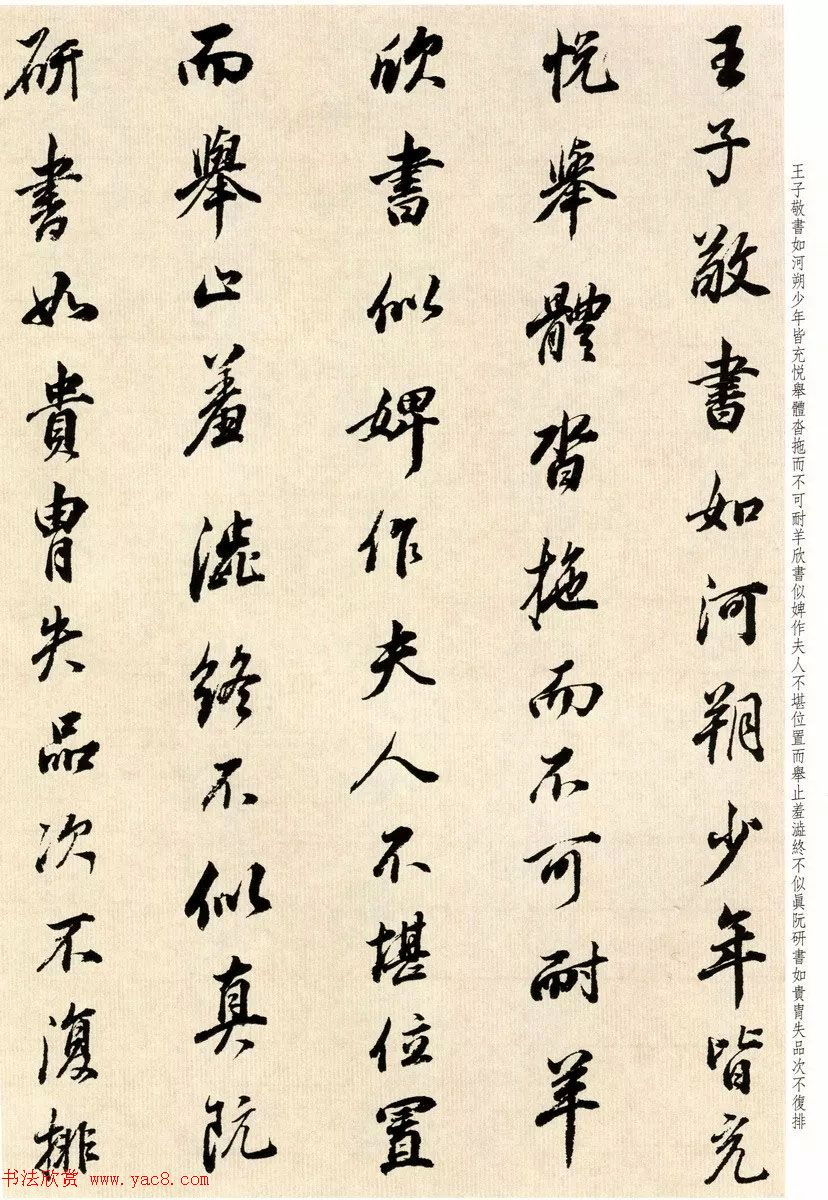 王子敬書如河朔少年皆充
悦舉體沓拖而不可耐羊
欣書似婢作夫人不堪位置
而舉止羞澁終不似真阮
研書如貴胄失品次不復排
王子敬書如河朔少年皆充悦舉體沓拖而不可耐羊欣書似婢作夫人不堪位置而舉止羞澁終不似眞阮研書如貴胄失品次不復排
书法欣赏 www.yac8.com